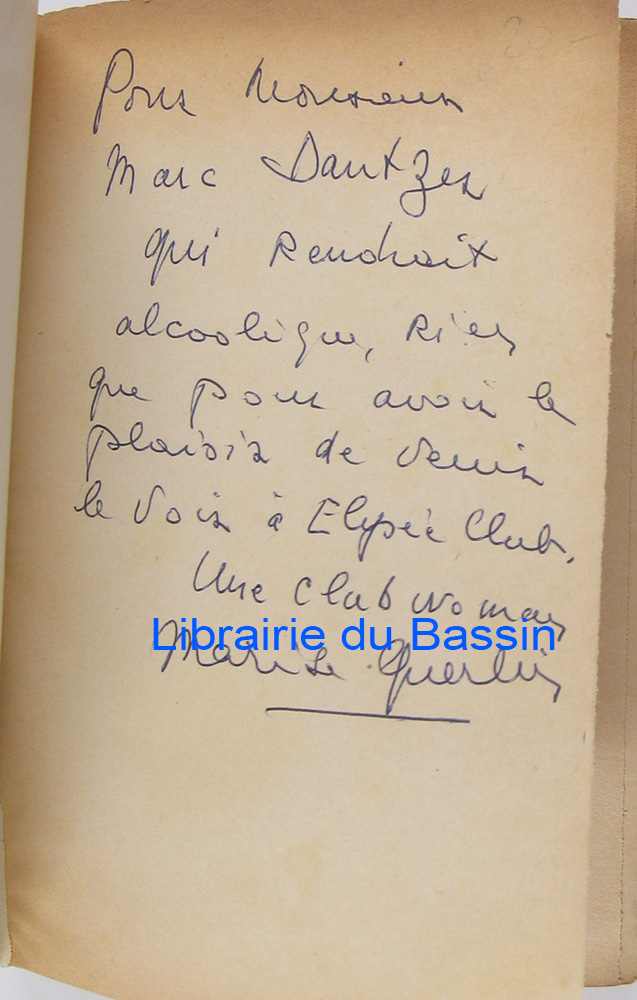 Pour Monsieur
Marc Dantzer
qui rendrait
alcoolique, rien
que pour avoir le
plaisir de venir
le voir à Elysée Club.
Une club woman
Librairie du Bassin
Marise Querlin